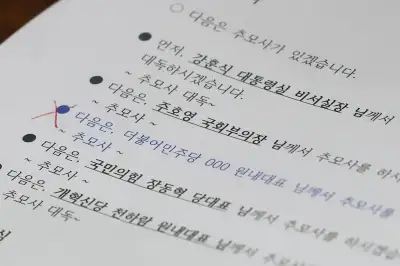 ○ 다음은 추모사가 있겠습니다.
● 먼저, 강훈식 대통령실 비서실장 님께서
대독하시겠습니다.
~ 추모사 대독~
● 다음은, 주호영 국회부의장 님께서 추모사를 하시
~ 추모사 ~
● 다음은, 더불어민주당 000 원내대표 님께서 추모사를
~ 추모사 ~
● 다음은, 국민의힘 장동혁 당대표 님께서 추모사를 하시겠습
~ 추모사 ~
다음은, 개혁신당 천하람 원내대표 님께서 추모사를
추모사 대독~